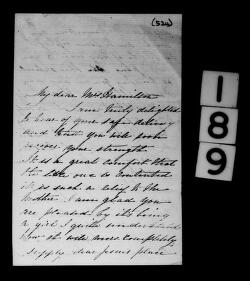 (524)
My dear Mrs Hamilton
I am truly delighted
to hear of your safe delivery
and trust you will soon
recover your strength
It is a great comfort that
the little one is contented
it is such a relief to the
Mother. I am glad you
are pleased by its being
a girl I quite understand
how it will more completely
supply dear place
189